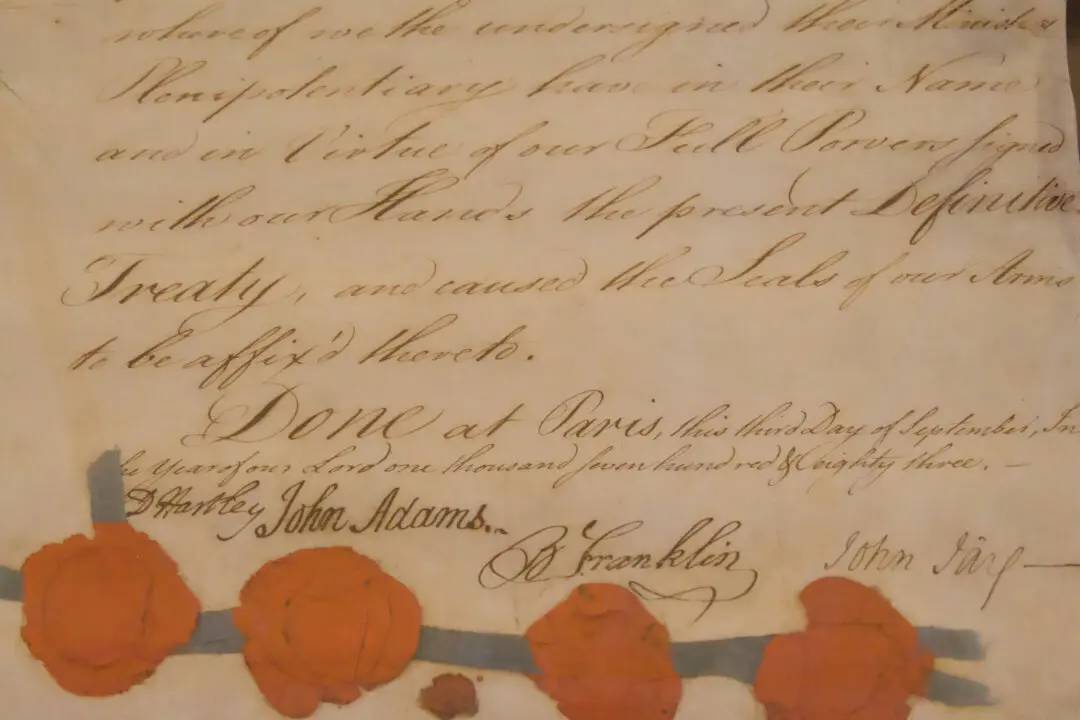 whereof we the undersigned their Ministers
Plenipotentiary have in their Name
and in Virtue of our Full Powers signed
with our Hands the present Definitive
Treaty, and caused the Seals of our Arms
to be affix'd thereto.
Done at Paris, this third Day of September, In
the Year of our Lord one thousand seven hundred & eighty three.—
D Hartley John Adams.
B Franklin John Jay—